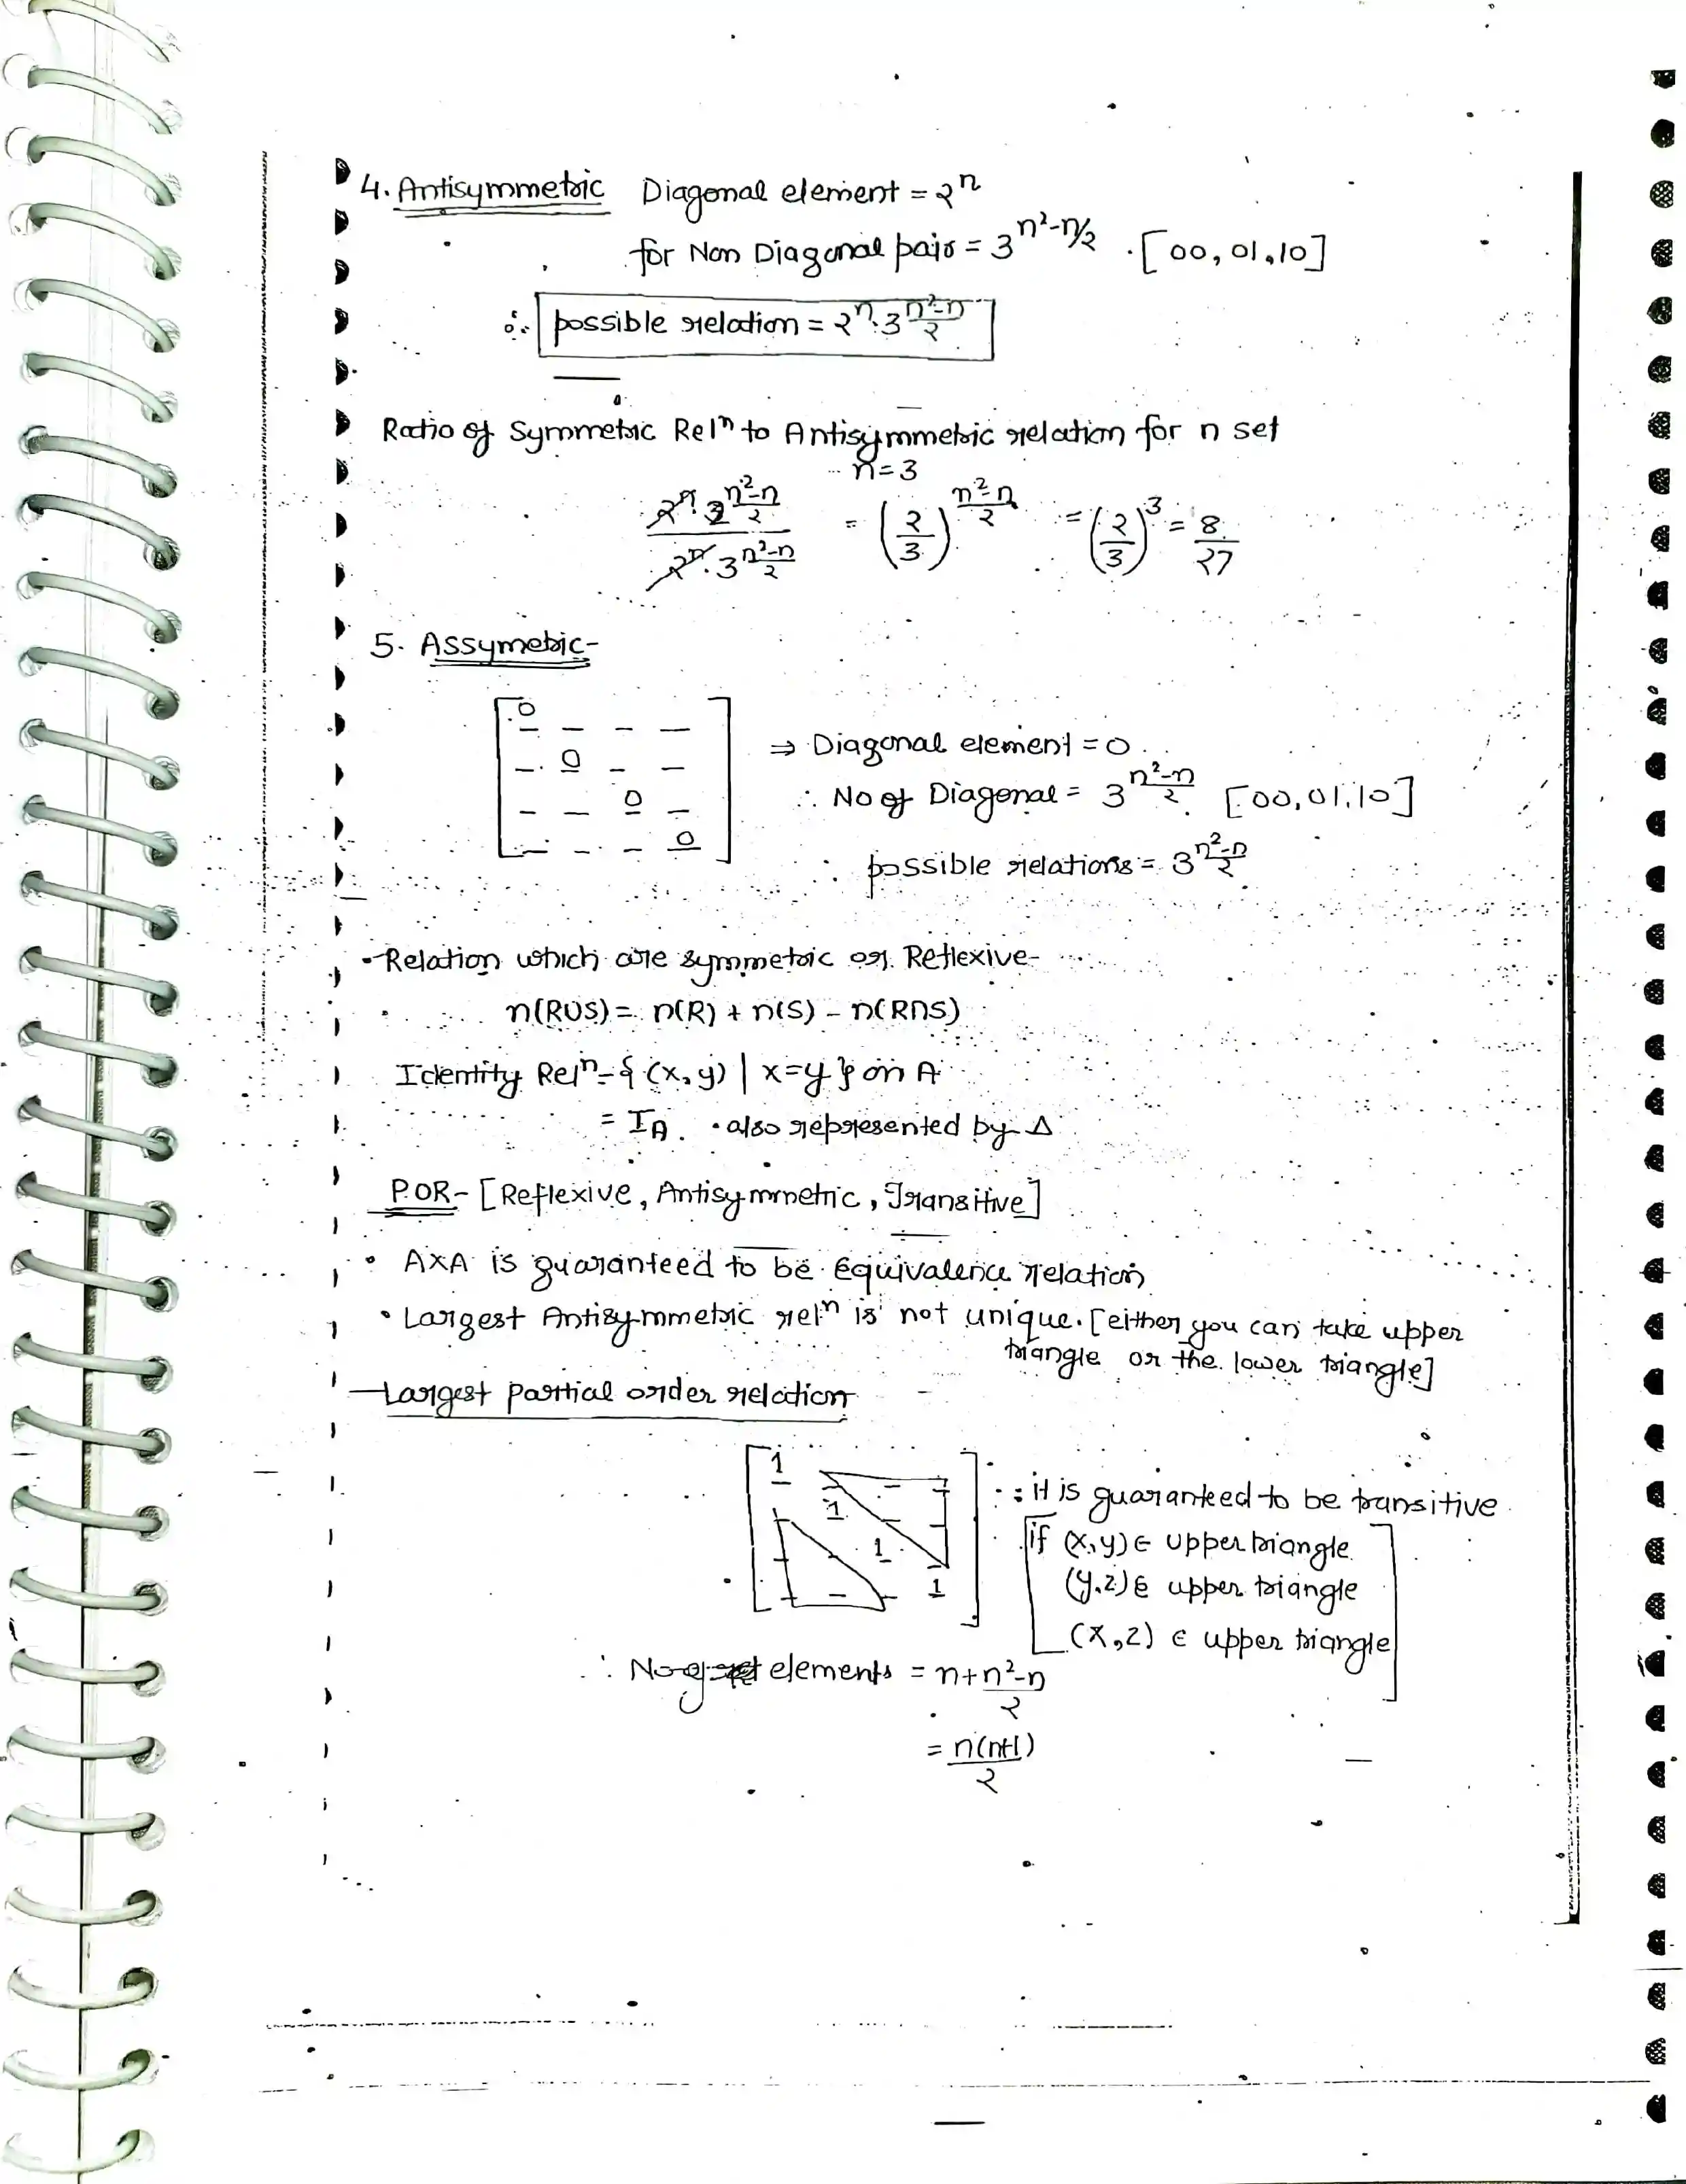 4. Antisymmetric Diagonal element = 2^n
for Non Diagonal pair = 3^(n²-n/2) . [00, 01, 10]
∴ possible relation = 2^n . 3^((n²-n)/2)
Ratio of Symmetric Rel^n to Antisymmetric relation for n set
n=3
(2^n . 2^((n²-n)/2)) / (2^n . 3^((n²-n)/2)) = (2/3)^((n²-n)/2) = (2/3)^3 = 8/27
5. Assymetric-
[0 _ _ _
_ 0 _ _
_ _ 0 _
_ _ _ 0]
⇒ Diagonal element = 0
∴ No of Diagonal = 3^((n²-n)/2) [00, 01, 10]
∴ possible relations = 3^((n²-n)/2)
• Relation which are symmetric or Reflexive-
n(RUS) = n(R) + n(S) - n(R∩S)
Identity Rel^n = { (x, y) | x=y } on A
= I_A . • also represented by Δ
POR- [Reflexive, Antisymmetric, Transitive]
• A×A is guaranteed to be Equivalence relation
• Largest Antisymmetric rel^n is not unique. [either you can take upper
triangle or the lower triangle]
Largest partial order relation
[1
1
1
1]
∴ it is guaranteed to be transitive
[if (x, y) ∈ upper triangle
(y, z) ∈ upper triangle
(x, z) ∈ upper triangle]
∴ No of elements = n + (n²-n)/2
= n(n+1)/2